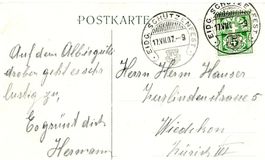 POSTKARTE
EIDG. SCHÜTZENFEST
17.VII.07.-9
5
Auf dem Albisgütli
droben geht es sehr
lustig zu,
Es grüsst dich
Hermann
Herrn Herm Hauser
Zurlindenstrasse 5
Wiedikon
Zürich III